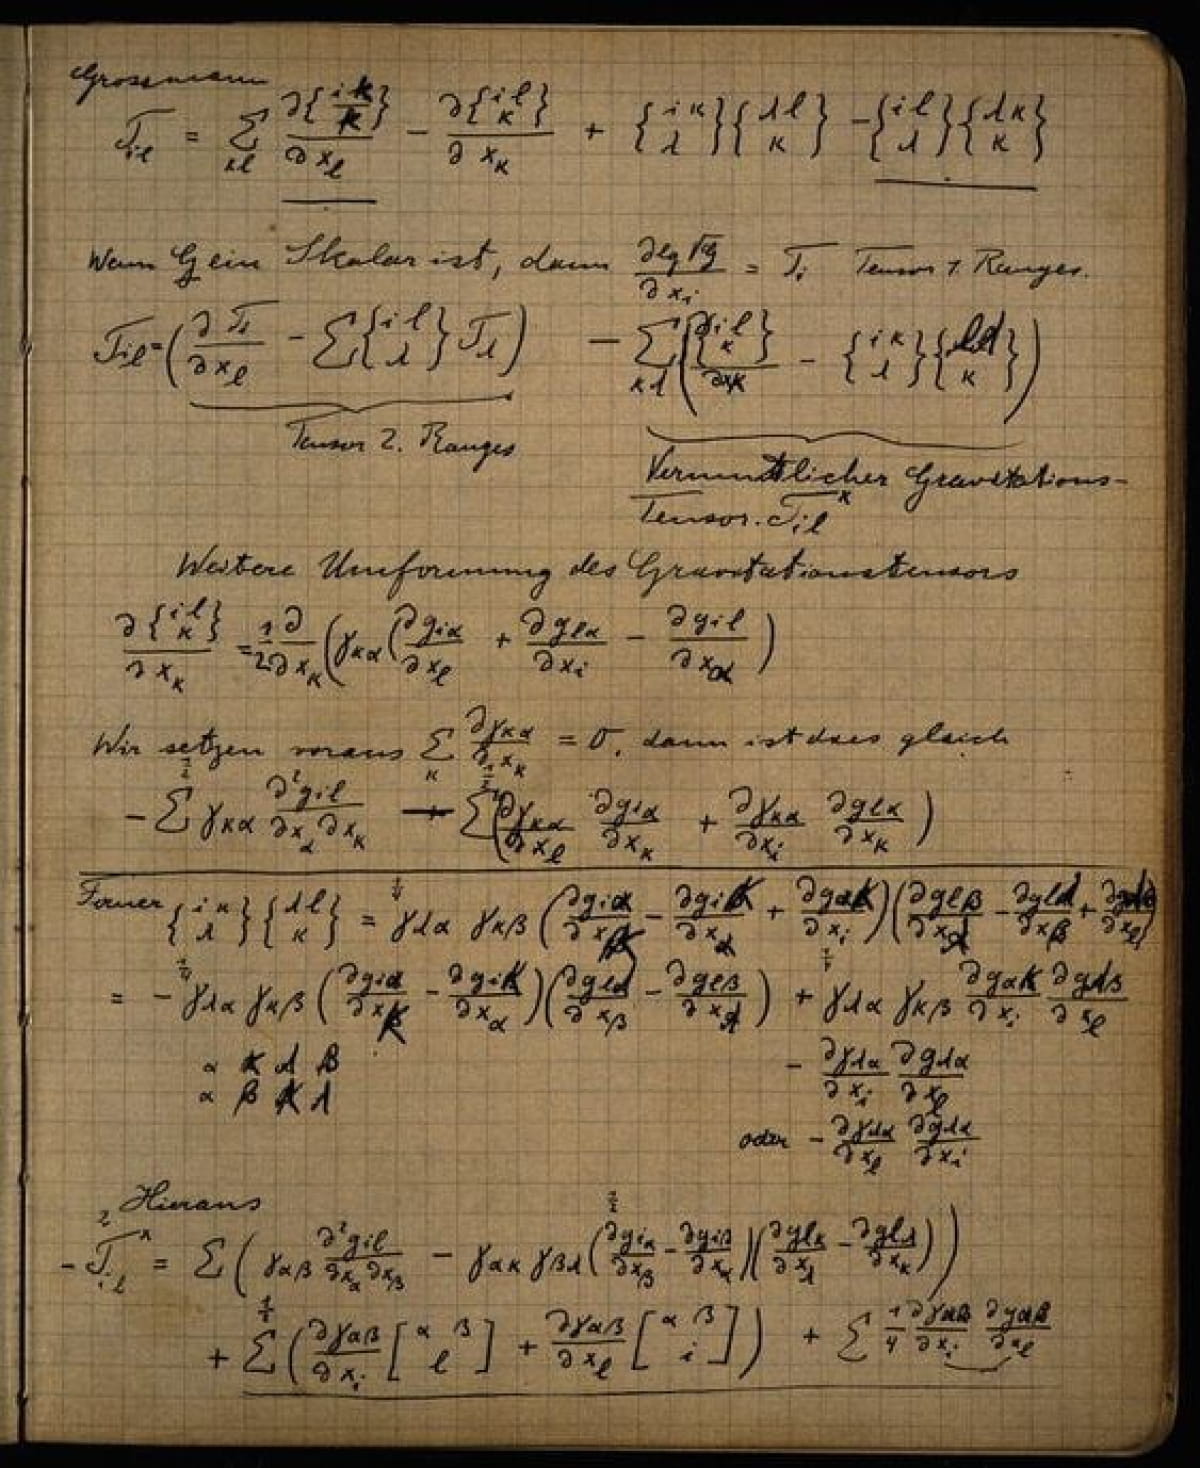 Grossmann
T_il = Σ_κl ∂{i κ / κ}/∂x_l − ∂{i l / κ}/∂x_κ + {i κ / λ}{λ l / κ} − {i l / λ}{λ κ / κ}
Wenn G ein Skalar ist, dann ∂lg√G/∂x_i = T_i Tensor 1. Ranges.
T_il = (∂T_i/∂x_l − Σ{i l / λ} T_λ) − Σ_κλ (∂{i l / κ}/∂x_κ − {i κ / λ}{l λ / κ})
Tensor 2. Ranges
Vermutlicher Gravitations-
Tensor. T_il^x
Weitere Umformung des Gravitationstensors
∂{i l / κ}/∂x_κ = 1/2 ∂/∂x_κ (γ_κα (∂g_iα/∂x_l + ∂g_lα/∂x_i − ∂g_il/∂x_α)
Wir setzen voraus Σ_κ ∂γ_κα/∂x_κ = 0, dann ist dies gleich
− 1/2 Σ γ_κα ∂²g_il/∂x_α∂x_κ − 1/2 Σ(∂γ_κα/∂x_l ∂g_iα/∂x_κ + ∂γ_κα/∂x_i ∂g_lα/∂x_κ)
Ferner {i κ / λ}{λ l / κ} = 1/4 γ_λα γ_κβ (∂g_iα/∂x_κ − ∂g_iκ/∂x_α + ∂g_ακ/∂x_i)(∂g_lβ/∂x_λ − ∂g_lλ/∂x_β + ∂g_λβ/∂x_l)
= − 1/4 γ_λα γ_κβ (∂g_iα/∂x_κ − ∂g_iκ/∂x_α)(∂g_lλ/∂x_β − ∂g_lβ/∂x_λ) + 1/4 γ_λα γ_κβ ∂g_ακ/∂x_i ∂g_λβ/∂x_l
α κ λ β
α β κ λ
− ∂γ_λα/∂x_i ∂g_λα/∂x_l
oder − ∂γ_λα/∂x_l ∂g_λα/∂x_i
Hieraus
− 2 T_il^x = Σ (γ_αβ ∂²g_il/∂x_α∂x_β − 1/2 γ_ακ γ_βλ (∂g_iα/∂x_β − ∂g_iβ/∂x_α)(∂g_lκ/∂x_λ − ∂g_lλ/∂x_κ))
+ Σ (∂γ_αβ/∂x_i [α β / l] + ∂γ_αβ/∂x_l [α β / i]) + Σ 1/4 ∂γ_αβ/∂x_i ∂g_αβ/∂x_l